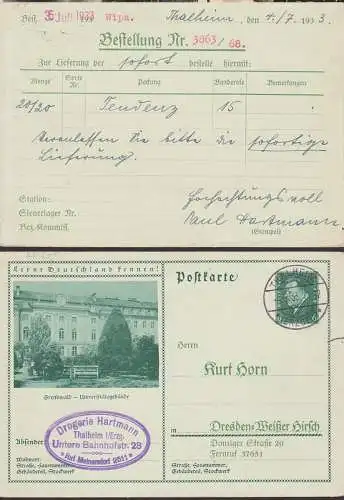 Best. 5. Juli 1933 Wipa. Thalheim, den 4./7. 1933.
Bestellung Nr. 3863/68.
Zur Lieferung per sofort bestelle hiermit:
Menge Sorte Nr. Packung Banderole Bemerkungen
20/20 Tendenz 15
Veranlassen Sie bitte die sofortige
Lieferung.
Hochachtungsvoll
Station:
Steuerlager Nr.
Paul Hartmann
Bez.-Kommiss.
(Stempel)
Lerne Deutschland kennen!
Postkarte
Greifswald — Universitätsgebäude
Herrn
Kurt Horn
in Dresden-Weißer Hirsch
Danziger Straße 20
Fernruf 37651
Straße, Hausnummer,
Gebäudeteil, Stockwerk
Drogerie Hartmann
Thalheim i/Erzg.
Untere Bahnhofstr. 23
Ruf Meinersdorf 2511
Absender:
Wohnort:
Straße, Hausnummer,
Gebäudeteil, Stockwerk